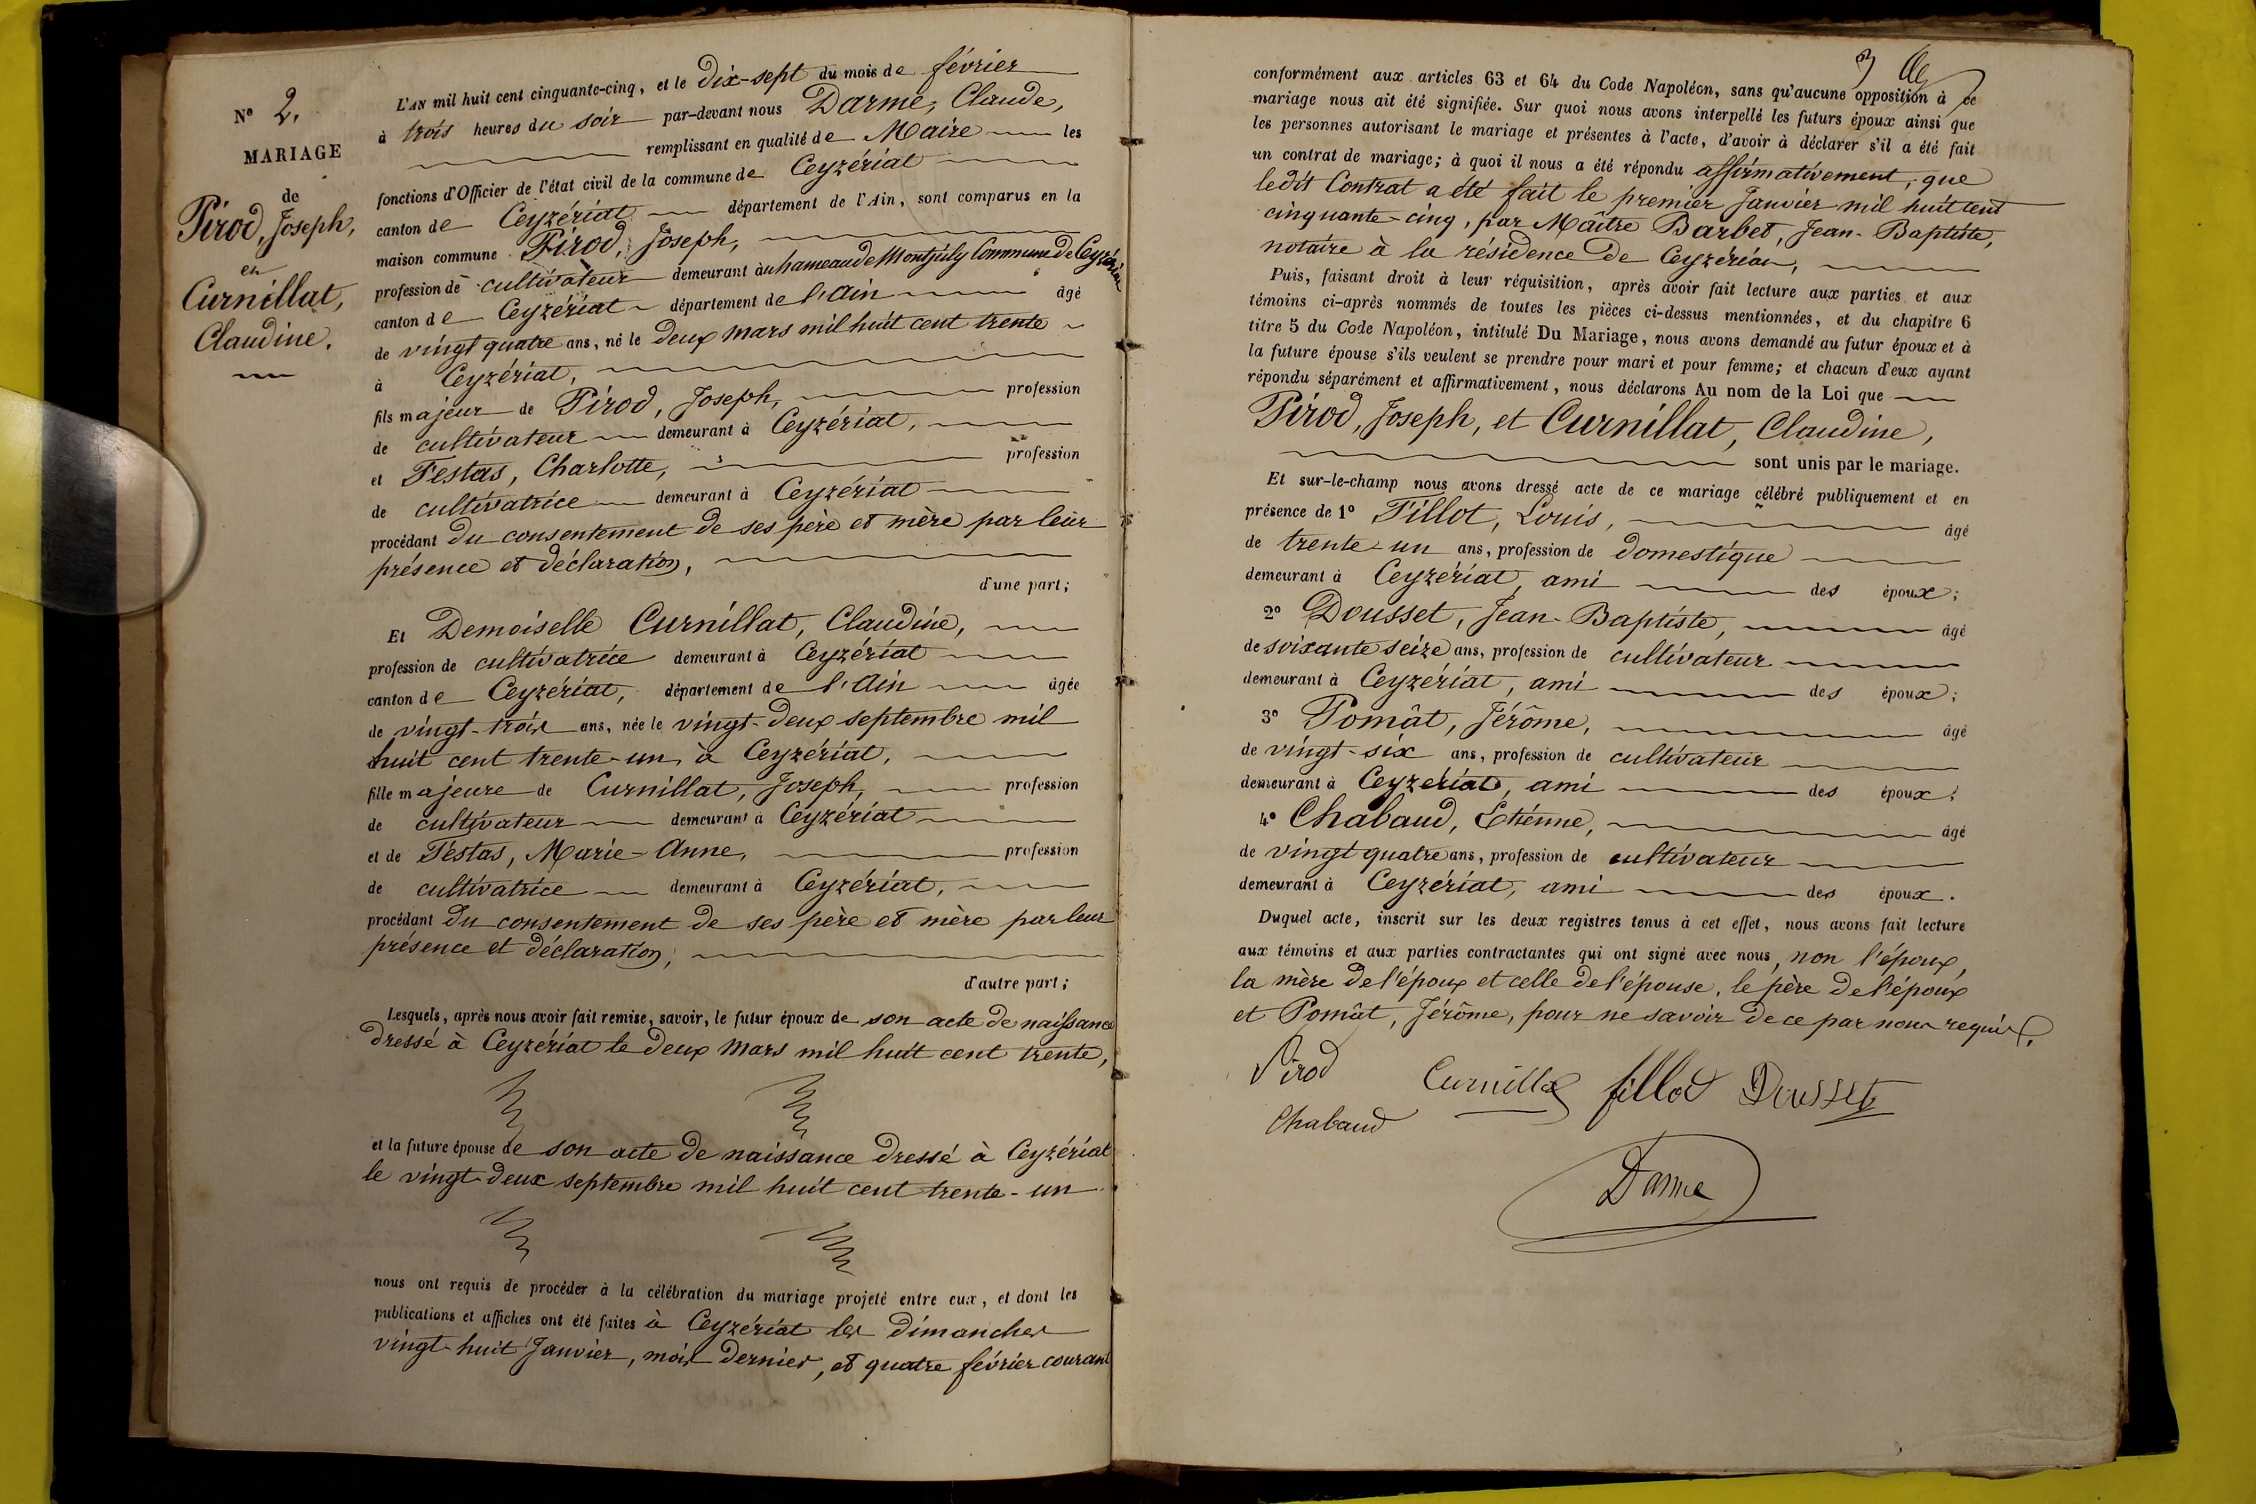 N° 2.
MARIAGE
de
Pirod, Joseph,
et
Curnillat,
Claudine.
L'AN mil huit cent cinquante-cinq, et le dix-sept du mois de février
à trois heures du soir par-devant nous Darme, Claude,
remplissant en qualité de Maire les
fonctions d'Officier de l'état civil de la commune de Ceyzériat
canton de Ceyzériat département de l'Ain, sont comparus en la
maison commune Pirod, Joseph,
profession de cultivateur demeurant au hameau de Montjuly Commune de Ceyzériat
canton de Ceyzériat département de l'Ain âgé
de vingt quatre ans, né le deux mars mil huit cent trente
à Ceyzériat,
fils majeur de Pirod, Joseph, profession
de cultivateur demeurant à Ceyzériat,
et Festas, Charlotte, profession
de cultivatrice demeurant à Ceyzériat
procédant du consentement de ses père et mère par leur
présence et déclaration,
d'une part;
Et Demoiselle Curnillat, Claudine,
profession de cultivatrice demeurant à Ceyzériat
canton de Ceyzériat, département de l'Ain âgée
de vingt-trois ans, née le vingt-deux septembre mil
huit cent trente-un, à Ceyzériat,
fille majeure de Curnillat, Joseph, profession
de cultivateur demeurant à Ceyzériat
et de Festas, Marie-Anne, profession
de cultivatrice demeurant à Ceyzériat,
procédant du consentement de ses père et mère par leur
présence et déclaration,
d'autre part;
Lesquels, après nous avoir fait remise, savoir, le futur époux de son acte de naissance
dressé à Ceyzériat le deux Mars mil huit cent trente,
et la future épouse de son acte de naissance dressé à Ceyzériat
le vingt-deux septembre mil huit cent trente-un
nous ont requis de procéder à la célébration du mariage projeté entre eux, et dont les
publications et affiches ont été faites à Ceyzériat les dimanches
vingt-huit Janvier, mois dernier, et quatre février courant
3
conformément aux articles 63 et 64 du Code Napoléon, sans qu'aucune opposition à ce
mariage nous ait été signifiée. Sur quoi nous avons interpellé les futurs époux ainsi que
les personnes autorisant le mariage et présentes à l'acte, d'avoir à déclarer s'il a été fait
un contrat de mariage; à quoi il nous a été répondu affirmativement, que
ledit Contrat a été fait le premier Janvier mil huit cent
cinquante-cinq, par Maître Barbet, Jean-Baptiste,
notaire à la résidence de Ceyzériat,
Puis, faisant droit à leur réquisition, après avoir fait lecture aux parties et aux
témoins ci-après nommés de toutes les pièces ci-dessus mentionnées, et du chapitre 6
titre 5 du Code Napoléon, intitulé Du Mariage, nous avons demandé au futur époux et à
la future épouse s'ils veulent se prendre pour mari et pour femme; et chacun d'eux ayant
répondu séparément et affirmativement, nous déclarons Au nom de la Loi que
Pirod, Joseph, et Curnillat, Claudine,
sont unis par le mariage.
Et sur-le-champ nous avons dressé acte de ce mariage célébré publiquement et en
présence de 1° Fillot, Louis, âgé
de trente-un ans, profession de domestique
demeurant à Ceyzériat, ami des époux;
2° Dousset, Jean-Baptiste, âgé
de soixante seize ans, profession de cultivateur
demeurant à Ceyzériat, ami des époux;
3° Pomât, Jérôme, âgé
de vingt-six ans, profession de cultivateur
demeurant à Ceyzériat, ami des époux;
4° Chabaud, Etiénne, âgé
de vingt quatre ans, profession de cultivateur
demeurant à Ceyzériat, ami des époux.
Duquel acte, inscrit sur les deux registres tenus à cet effet, nous avons fait lecture
aux témoins et aux parties contractantes qui ont signé avec nous, non l'époux,
la mère de l'époux et celle de l'épouse, le père de l'époux
et Pomât, Jérôme, pour ne savoir de ce par nous requis.
Pirod Curnillat fillod Dousset
Chabaud
Darme